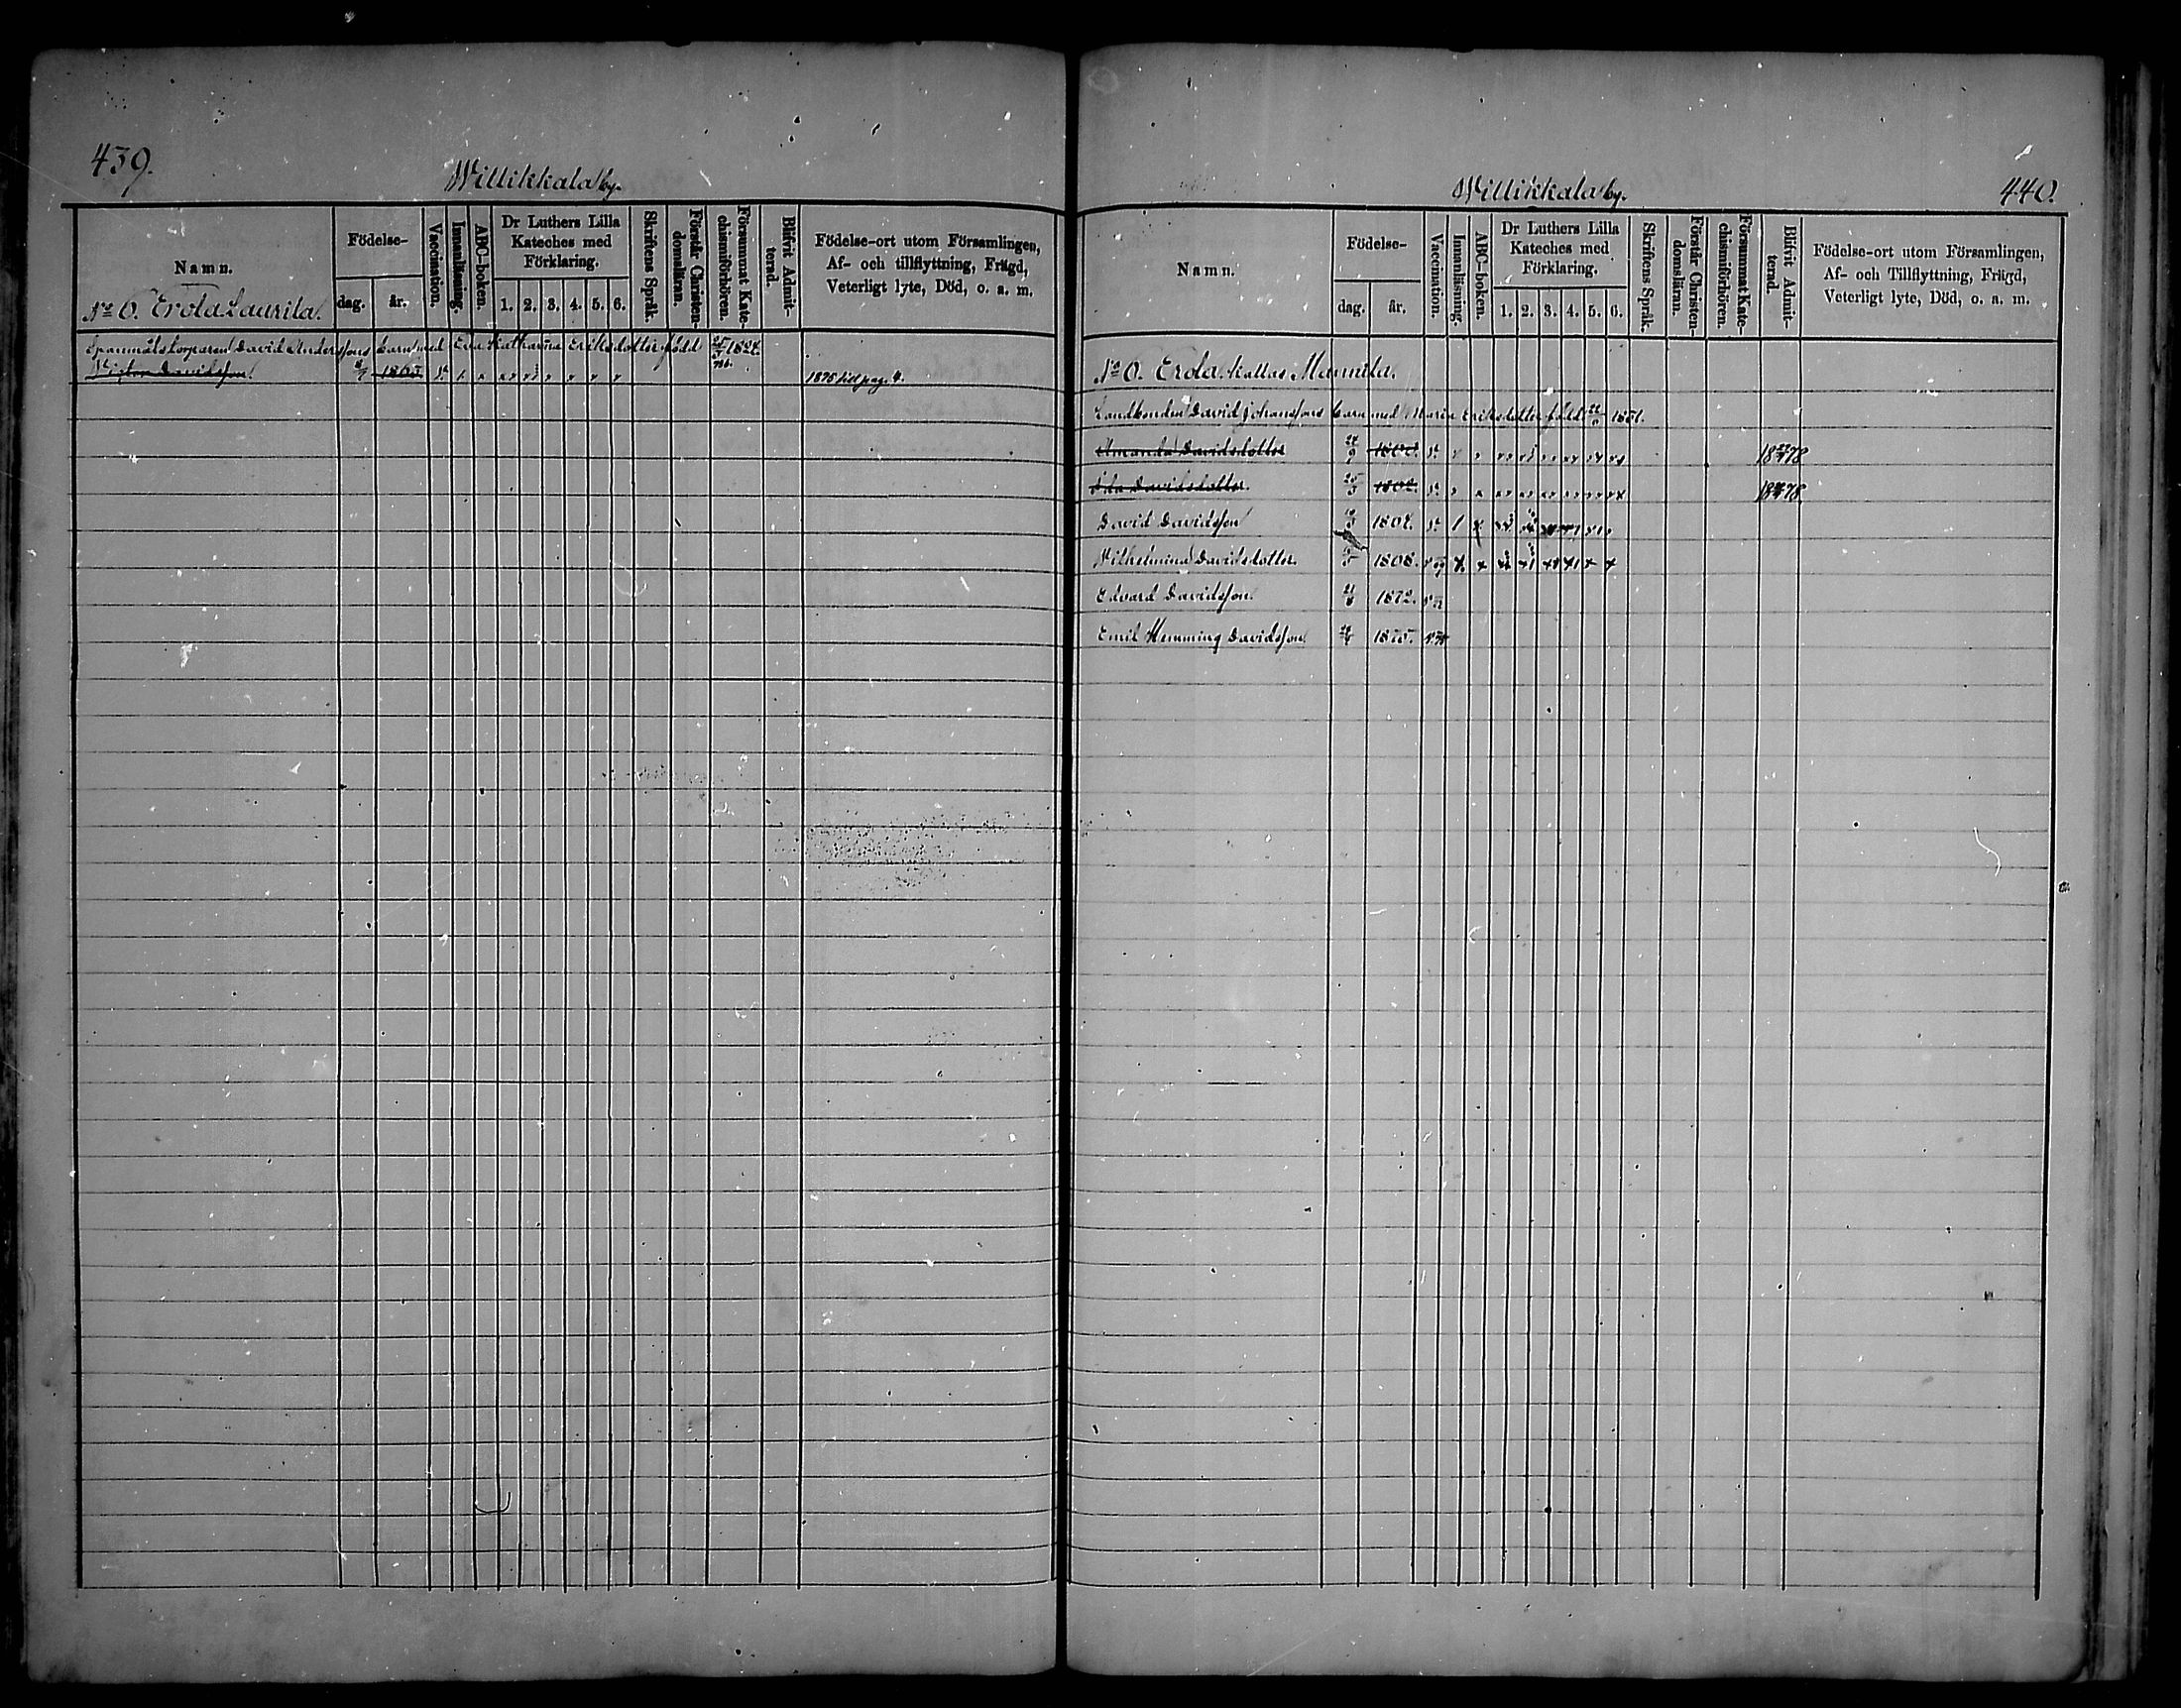 439.
Willikkala by.
Namn.
Födelse-
dag.
år.
Vaccination.
Innanläsning.
ABC-boken.
Dr Luthers Lilla
Kateches med
Förklaring.
1. 2. 3. 4. 5. 6.
Skriftens Språk.
Förstår Christen-
domsläran.
Försummat Kate-
chismiförhören.
Blifvit Admit-
terad.
Födelse-ort utom Församlingen,
Af- och tillflyttning, Frägd,
Veterligt lyte, Död, o. a. m.
No 6. Erola Laurila.
David Anderssons barn med Eva Katharina Eriksdotter född 1824.
Victor Davidsson 1865
1875 till pag. 4.
440.
Willikkala by.
Namn.
Födelse-
dag.
år.
Vaccination.
Innanläsning.
ABC-boken.
Dr Luthers Lilla
Kateches med
Förklaring.
1. 2. 3. 4. 5. 6.
Skriftens Språk.
Förstår Christen-
domsläran.
Försummat Kate-
chismiförhören.
Blifvit Admit-
terad.
Födelse-ort utom Församlingen,
Af- och Tillflyttning, Frägd,
Veterligt lyte, Död, o. a. m.
No 6. Erola kallas Mannila.
Landbonden David Johanssons barn med Maria Eriksdotter född
Amanda Davidsdotter 18 78
Ida Davidsdotter 18 78
David Davidsson
Wilhelmina Davidsdotter 1868.
Edvard Davidsson 1872.
Emil Hemming Davidsson 1875.